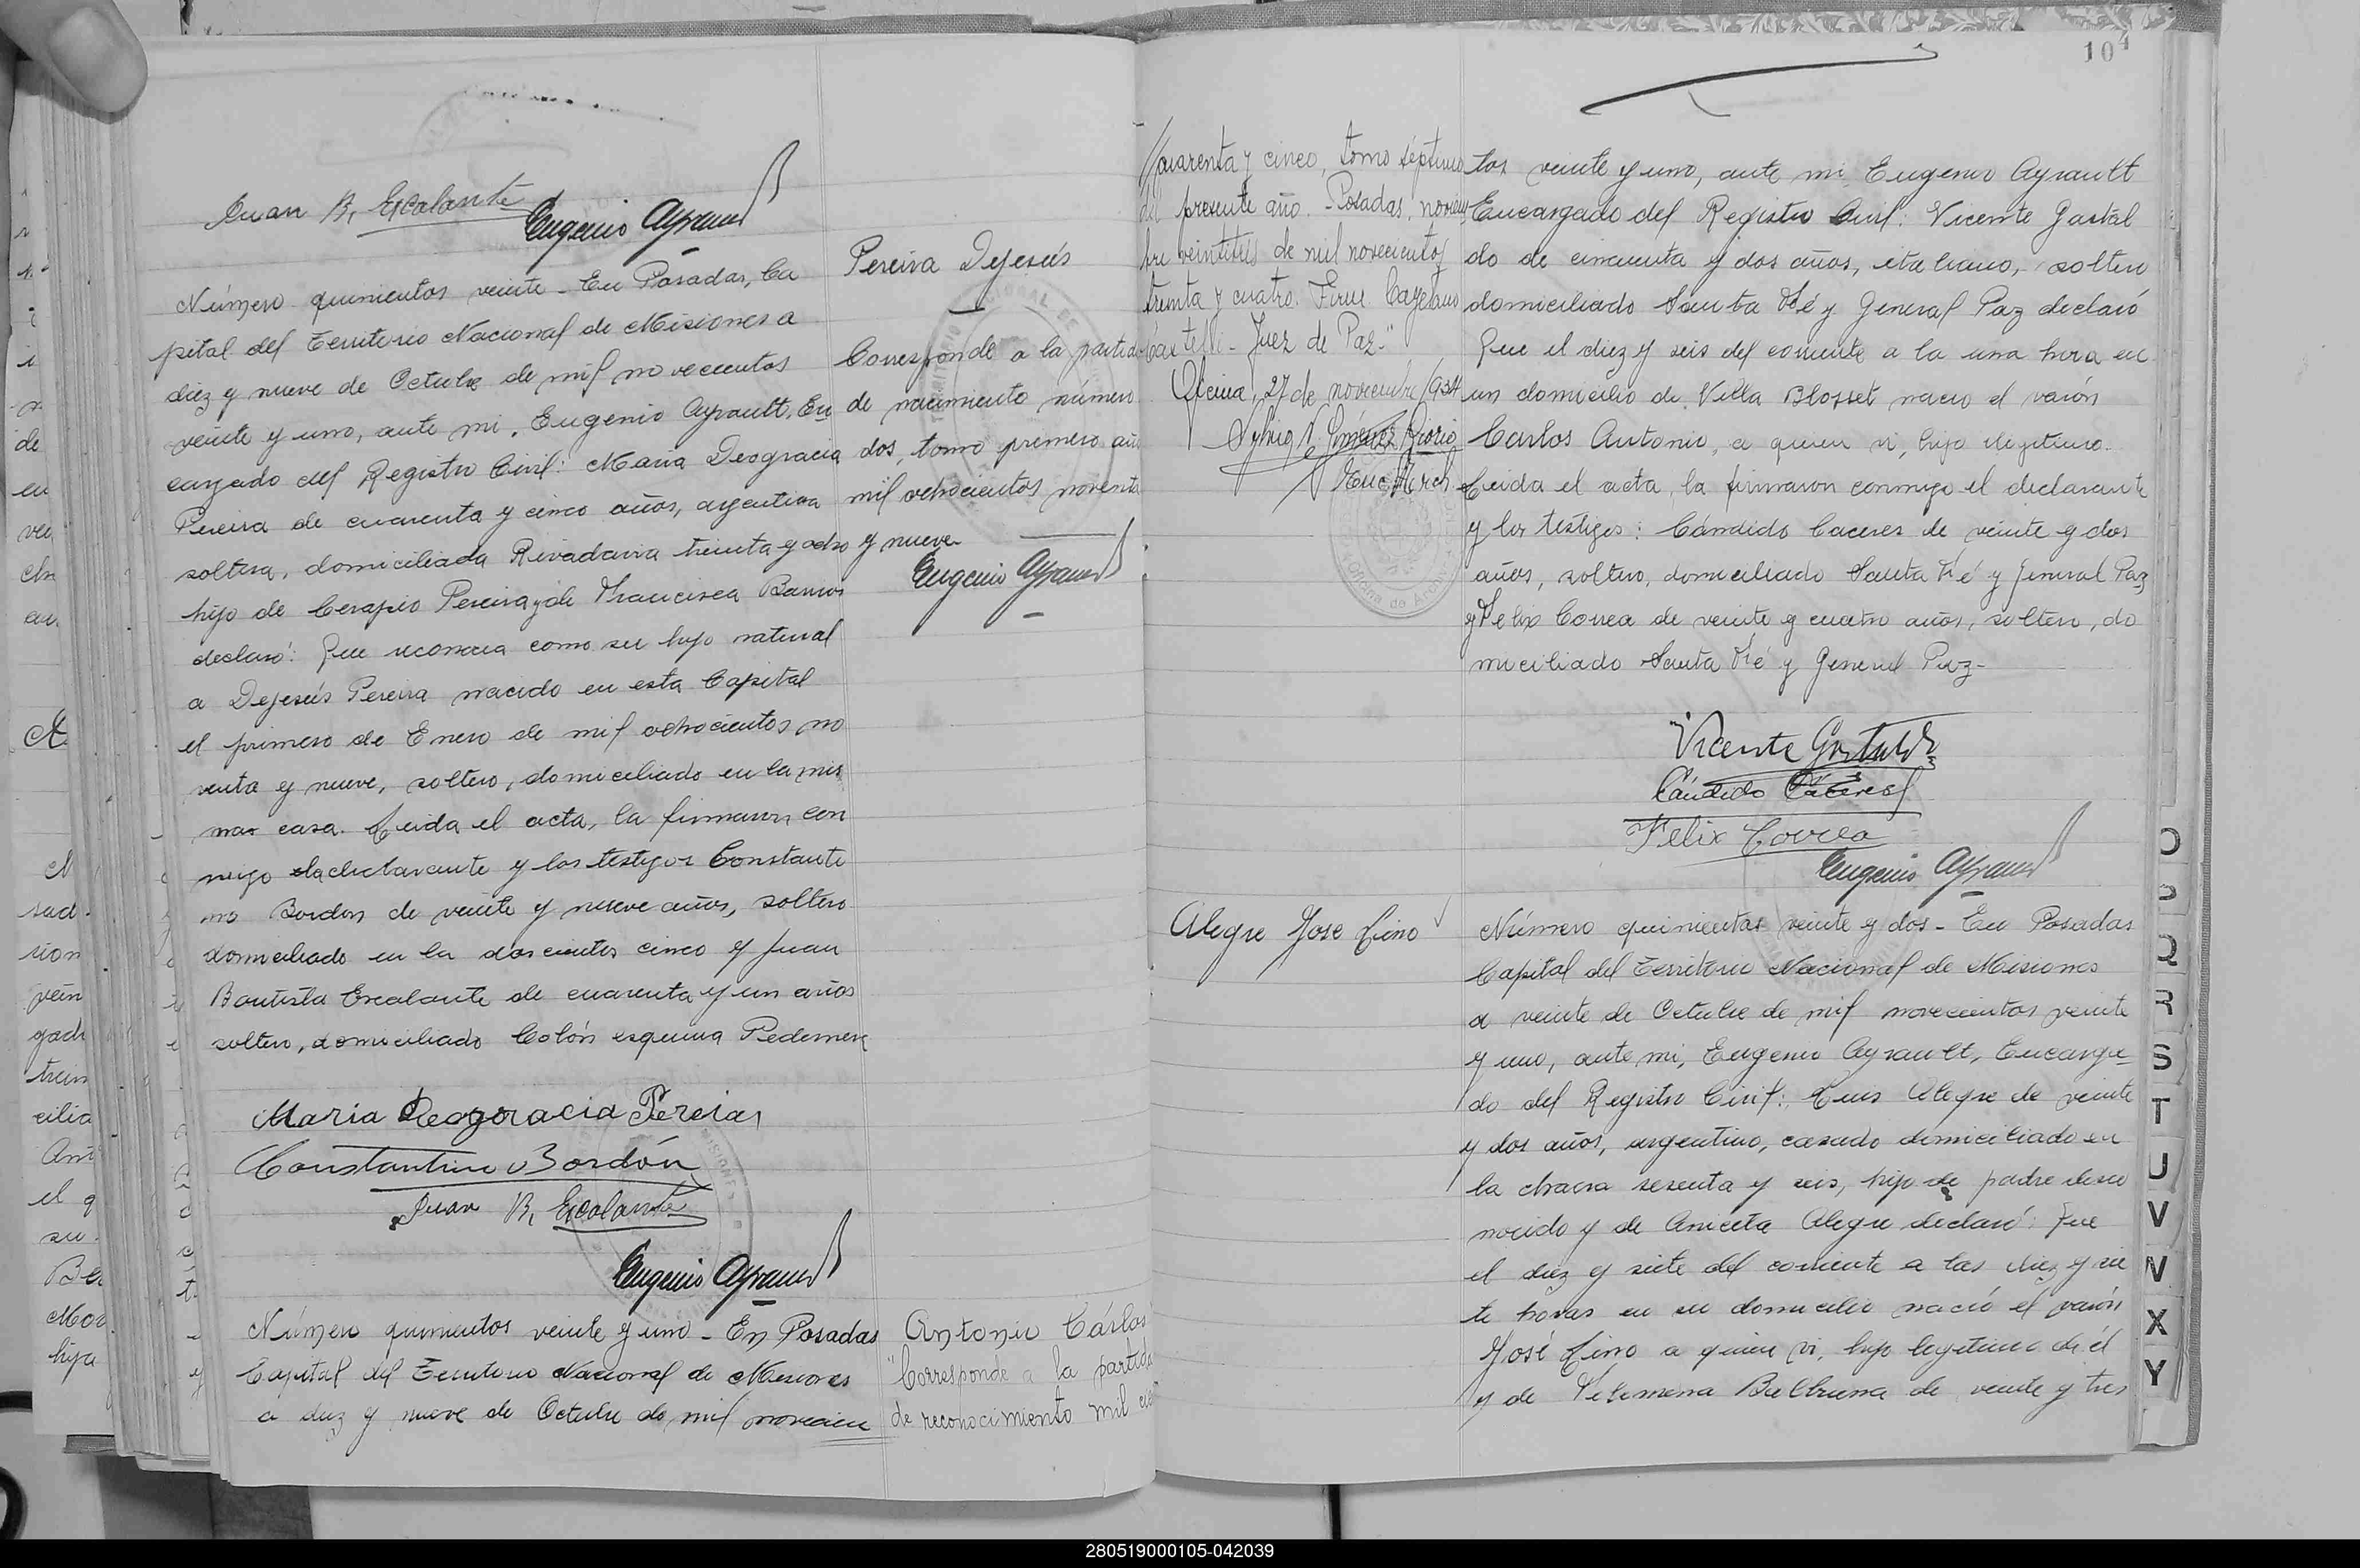 Juan B. Escalante
Eugenio Ayrault
Número quinientos veinte - En Posadas, Ca
pital del Territorio Nacional de Misiones a
diez y nueve de Octubre de mil novecientos
veinte y uno, ante mi, Eugenio Ayrault, En
cargado del Registro Civil: Maria Deogracia
Pereira de cuarenta y cinco años, argentina
soltera, domiciliada Rivadavia treinta y ocho
hijo de Cerapio Pereira y de Francisca Barrios
declaró: Que reconocia como su hijo natural
a Dejesús Pereira nacido en esta Capital
el primero de Enero de mil ochocientos no
venta y nueve, soltero, domiciliado en la mis
ma casa. Leida el acta, la firmaron con
migo la declarante y los testigos Constanti
no Bordon de veinte y nueve años, soltero
domiciliado en la doscientos cinco y Juan
Bautista Escalante de cuarenta y un años
soltero, domiciliado Colón esquina Pedernera
Maria Deogracia Pereira
Constantino Bordón
Juan B. Escalante
Eugenio Ayrault
Pereira Dejesús
Corresponde a la partida
de nacimiento número
dos, tomo primero año
mil ochocientos noventa
y nueve.
Eugenio Ayrault
Número quinientos veinte y uno - En Posadas
Capital del Territorio Nacional de Misiones
a diez y nueve de Octubre de mil novecien
Antonio Cárlos
"Corresponde a la partida
de reconocimiento mil
104
//cuarenta y cinco, tomo séptimo
del presente año. - Posadas, noviem
bre veintitrés de mil novecientos
treinta y cuatro. Firm. Cayetano
Castelli - Juez de Paz."
Oficina, 27 de noviembre 1934
Enc. Arch.
Oficina de
tos veinte y uno, ante mi, Eugenio Ayrault
Encargado del Registro Civil: Vicente Gastal
do de cincuenta y dos años, italiano, soltero
domiciliado Santa Fé y General Paz declaró
Que el diez y seis del corriente a la una hora en
un domicilio de Villa Blosset nacio el varón
Carlos Antonio, a quien vi, hijo ilegitimo.
Leida el acta, la firmaron conmigo el declarante
y los testigos: Cándido Caceres de veinte y dos
años, soltero, domiciliado Santa Fé y General Paz
y Felix Correa de veinte y cuatro años, soltero, do
miciliado Santa Fé y General Paz-
Vicente Gastaldo
Cándido Cáceres
Felix Correa
Eugenio Ayrault
Alegre Jose Lino
Número quinientos veinte y dos - En Posadas
Capital del Territorio Nacional de Misiones
a veinte de Octubre de mil novecientos veinte
y uno, ante mi, Eugenio Ayrault, Encarga-
do del Registro Civil: Luis Alegre de veinte
y dos años, argentino, casado domiciliado en
la chacra sesenta y seis, hijo de padre desco
nocido y de Aniceta Alegre declaró: Que
el diez y siete del corriente a las diez y sie
te horas en su domicilio nació el varón
José Lino a quien vi, hijo legitimo de él
y de Filomena Balbuena de veinte y tres
Q
R
S
T
U
V
X
Y
280519000105-042039